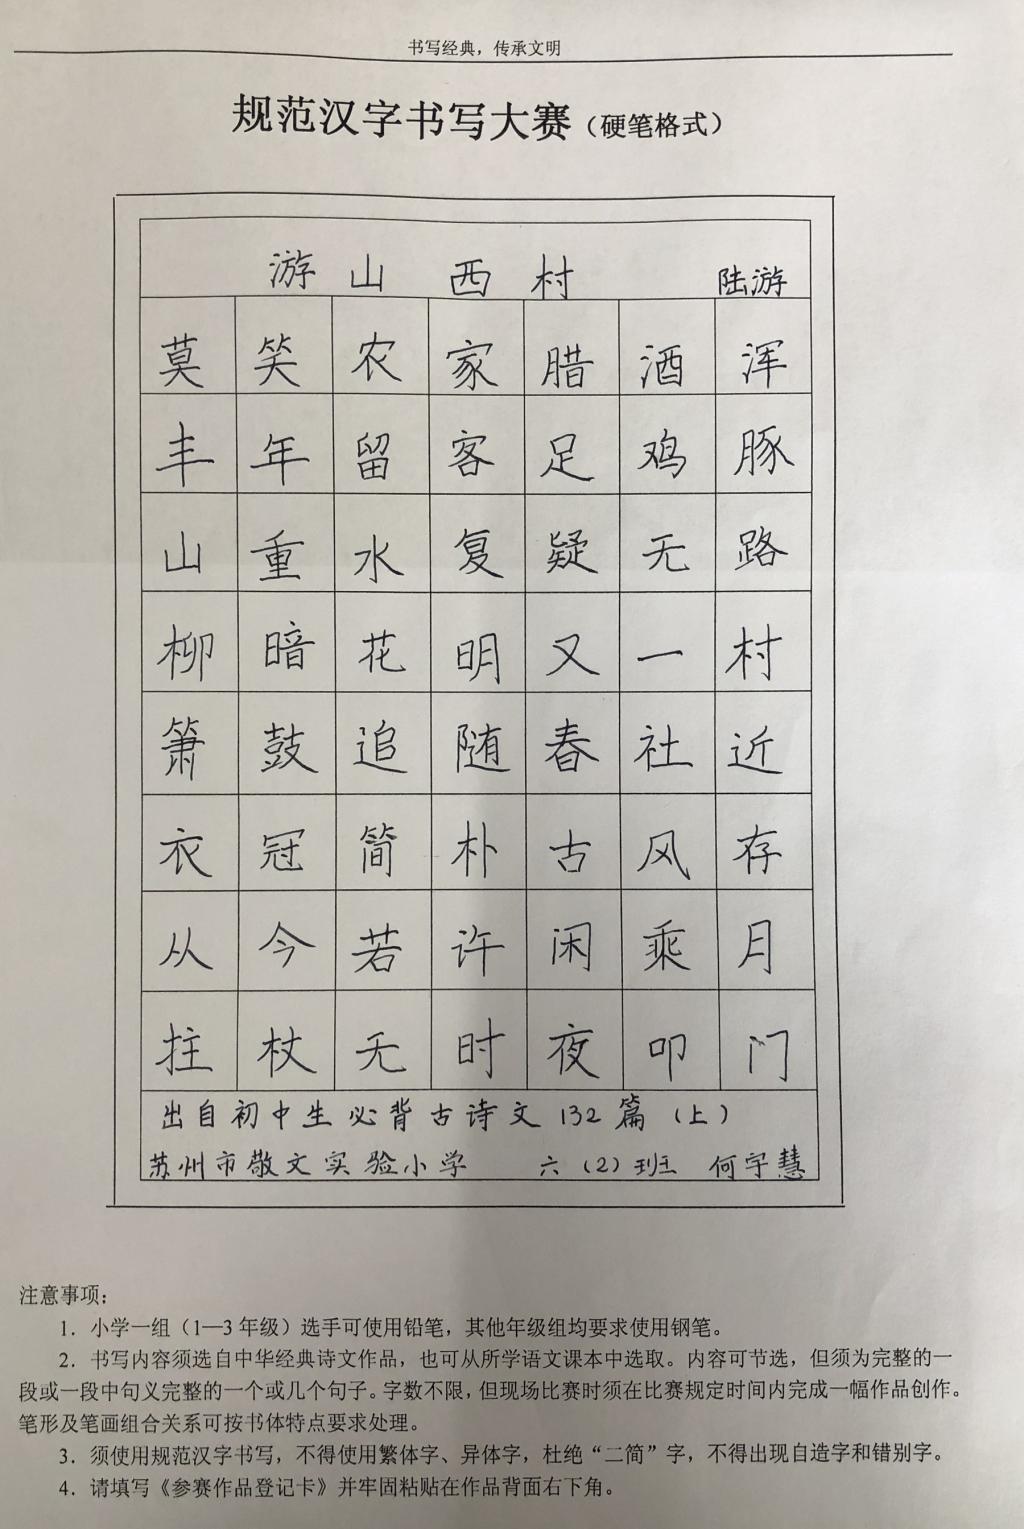 书写经典，传承文明
规范汉字书写大赛（硬笔格式）
游山西村 陆游
莫笑农家腊酒浑
丰年留客足鸡豚
山重水复疑无路
柳暗花明又一村
箫鼓追随春社近
衣冠简朴古风存
从今若许闲乘月
拄杖无时夜叩门
出自初中生必背古诗文132篇（上）
苏州市敬文实验小学 六（2）班 何宇慧
注意事项：
1．小学一组（1—3年级）选手可使用铅笔，其他年级组均要求使用钢笔。
2．书写内容须选自中华经典诗文作品，也可从所学语文课本中选取。内容可节选，但须为完整的一
段或一段中句义完整的一个或几个句子。字数不限，但现场比赛时须在比赛规定时间内完成一幅作品创作。
笔形及笔画组合关系可按书体特点要求处理。
3．须使用规范汉字书写，不得使用繁体字、异体字，杜绝“二简”字，不得出现自造字和错别字。
4．请填写《参赛作品登记卡》并牢固粘贴在作品背面右下角。